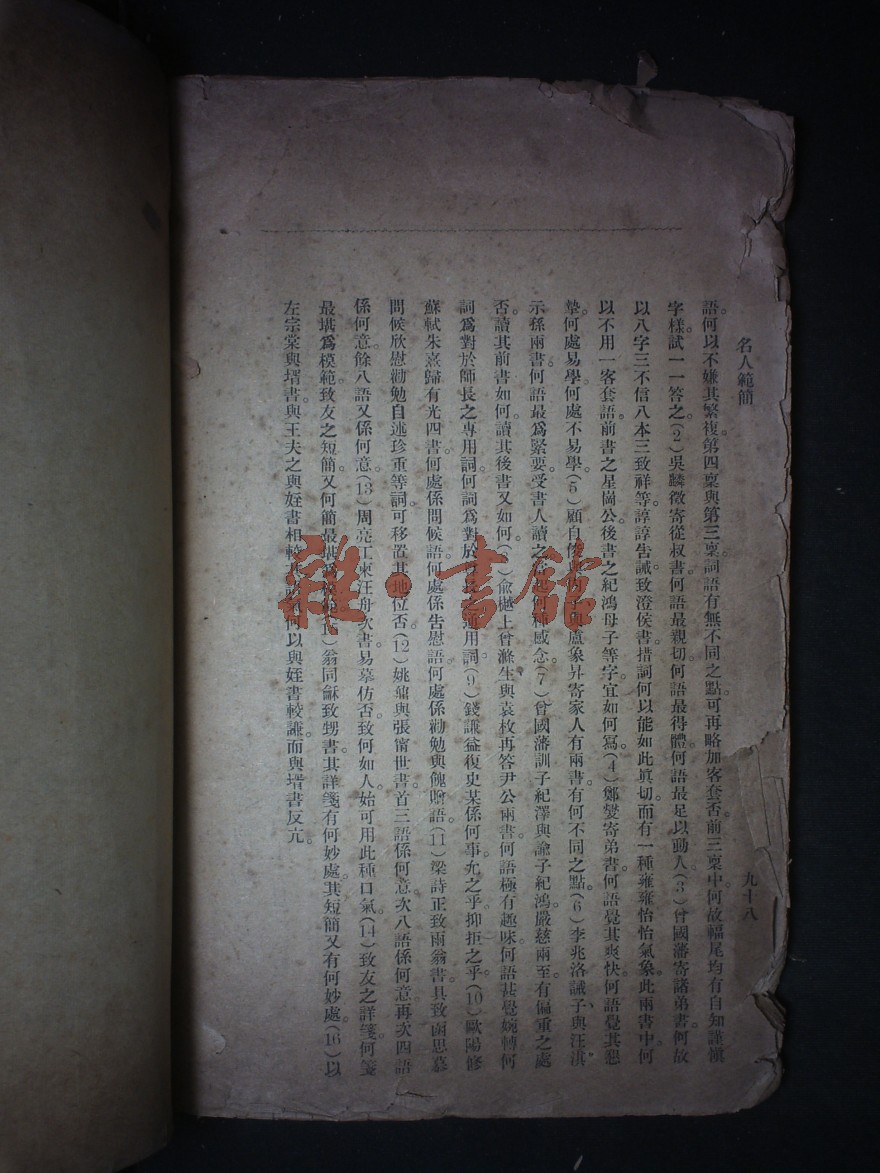 名人範簡
九十八
語。何以不嫌其繁複。第四稟與第三稟詞語有無不同之點。可再略加客套否。前三稟中。何故幅尾均有自知謹愼
字樣。試一一答之。(2)吳麟徵寄從叔書。何語最親切。何語最得體。何語最足以動人。(3)曾國藩寄諸弟書。何故
以八字三不信八本三致祥等。諄諄告誡。致澄侯書。措詞何以能如此眞切。而有一種雍雍怡怡氣象。此兩書中。何
以不用一客套語。前書之星岡公。後書之紀鴻母子等字。宜如何寫。(4)鄭燮寄弟書。何語覺其爽快。何語覺其懇
摯。何處易學。何處不易學。(5)顧自俊與盧象昇寄家人。有兩書。有何不同之點。(6)李兆洛誡子與汪淇
示孫兩書。何語最爲緊要。受書人讀之。當起何種感念。(7)曾國藩訓子紀澤與諭子紀鴻。嚴慈兩至。有偏重之處
否。讀其前書如何。讀其後書又如何。(8)俞樾上曾滌生與袁枚再答尹公兩書。何語極有趣味。何語甚覺婉轉。何
詞爲對於師長之專用詞。何詞爲對於長通用詞。(9)錢謙益復史某。係何事。允之乎。抑拒之乎。(10)歐陽修
蘇軾朱熹歸有光四書。何處係問候語。何處係告慰語。何處係勸勉與餽贈語。(11)梁詩正致兩翁書。具致函思慕
問候欣慰勸勉自述珍重等詞。可移置其地位否。(12)姚鼐與張甯世書。首三語係何意。次八語係何意。再次四語
係何意。餘八語又係何意。(13)周亮工柬汪舟次書。易摹仿否。致何如人。始可用此種口氣。(14)致友之詳箋。何箋
最堪爲模範。致友之短簡。又何簡最堪爲模範。(15)翁同龢致甥書。其詳箋有何妙處。其短簡又有何妙處。(16)以
左宗棠與壻書。與王夫之與姪書相較。其語氣何以與姪書較謙。而與壻書反亢。
雜·書館